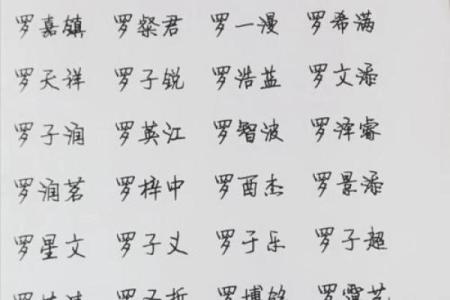 罗嘉镇 罗粲君 罗一漫 罗希满
罗天祥 罗子锐 罗浩蓝 罗文添
罗子润 罗英江 罗智波 罗泽睿
罗润茗 罗梓中 罗酉杰 罗景添
罗星文 罗子义 罗于乐 罗子超
罗子哲